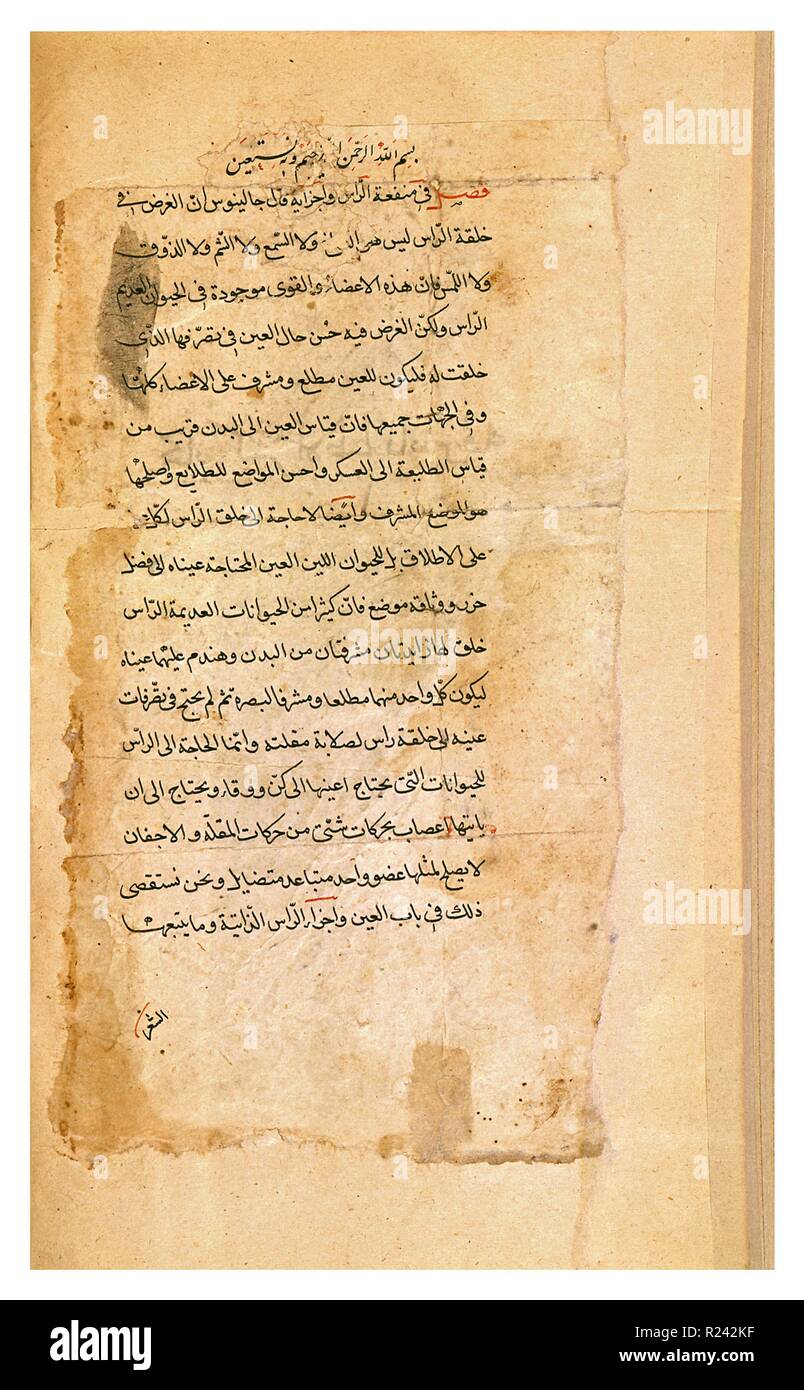 بسم اللّه الرّحمن الرّحيم وبه نستعين
فصل في منفعة الرّاس واجزايه قال جالينوس انّ الغرض في
خلقة الرّاس ليس هو ولا السّمع ولا الشّم ولا الذوق
ولا اللمس فانّ هذه الاعضاء والقوى موجودة في الحيوان العديم
الرّاس ولكنّ الغرض فيه حسن حال العين في تصرّفها الذّى
خلقت له فليكون للعين مطلع ومشرف على الاعضاء كلها
وفي الجهات جميعها فانّ قياس العين الى البدن قريب من
قياس الطليعة الى العسكر واحسن المواضع للطلايع واصلحها
هو الموضع المشرف وايضا لا حاجة الى خلق الرّاس لكل
على الاطلاق بل للحيوان اللين العين المحتاجة عيناه الى فضل
حرز ووثاقة موضع فانّ كثيرا من الحيوانات العديمة الرّاس
خلق لها مشرفتان من البدن وهندم عليهما عيناه
ليكون كلّ واحد منهما مطلعا ومشرفا لبصره ثم لم يحتج في تصرّفات
عينه الى خلقة راس لصلابة مقلته وانّما الحاجة الى الراس
للحيوانات التّى يحتاج اعينها الى كنّ ووقاء ويحتاج الى ان
ياتيها اعصاب بحركات شتّى من حركات المقلة والاجفان
لا يصلح لمثلها عضو واحد متباعد متضايل ونحن نستقصى
ذلك في باب العين واجزاء الرّاس الذّاتية وما يتبعها
الشعر
alamy
a
alamy
Image ID: R242KF
www.alamy.com